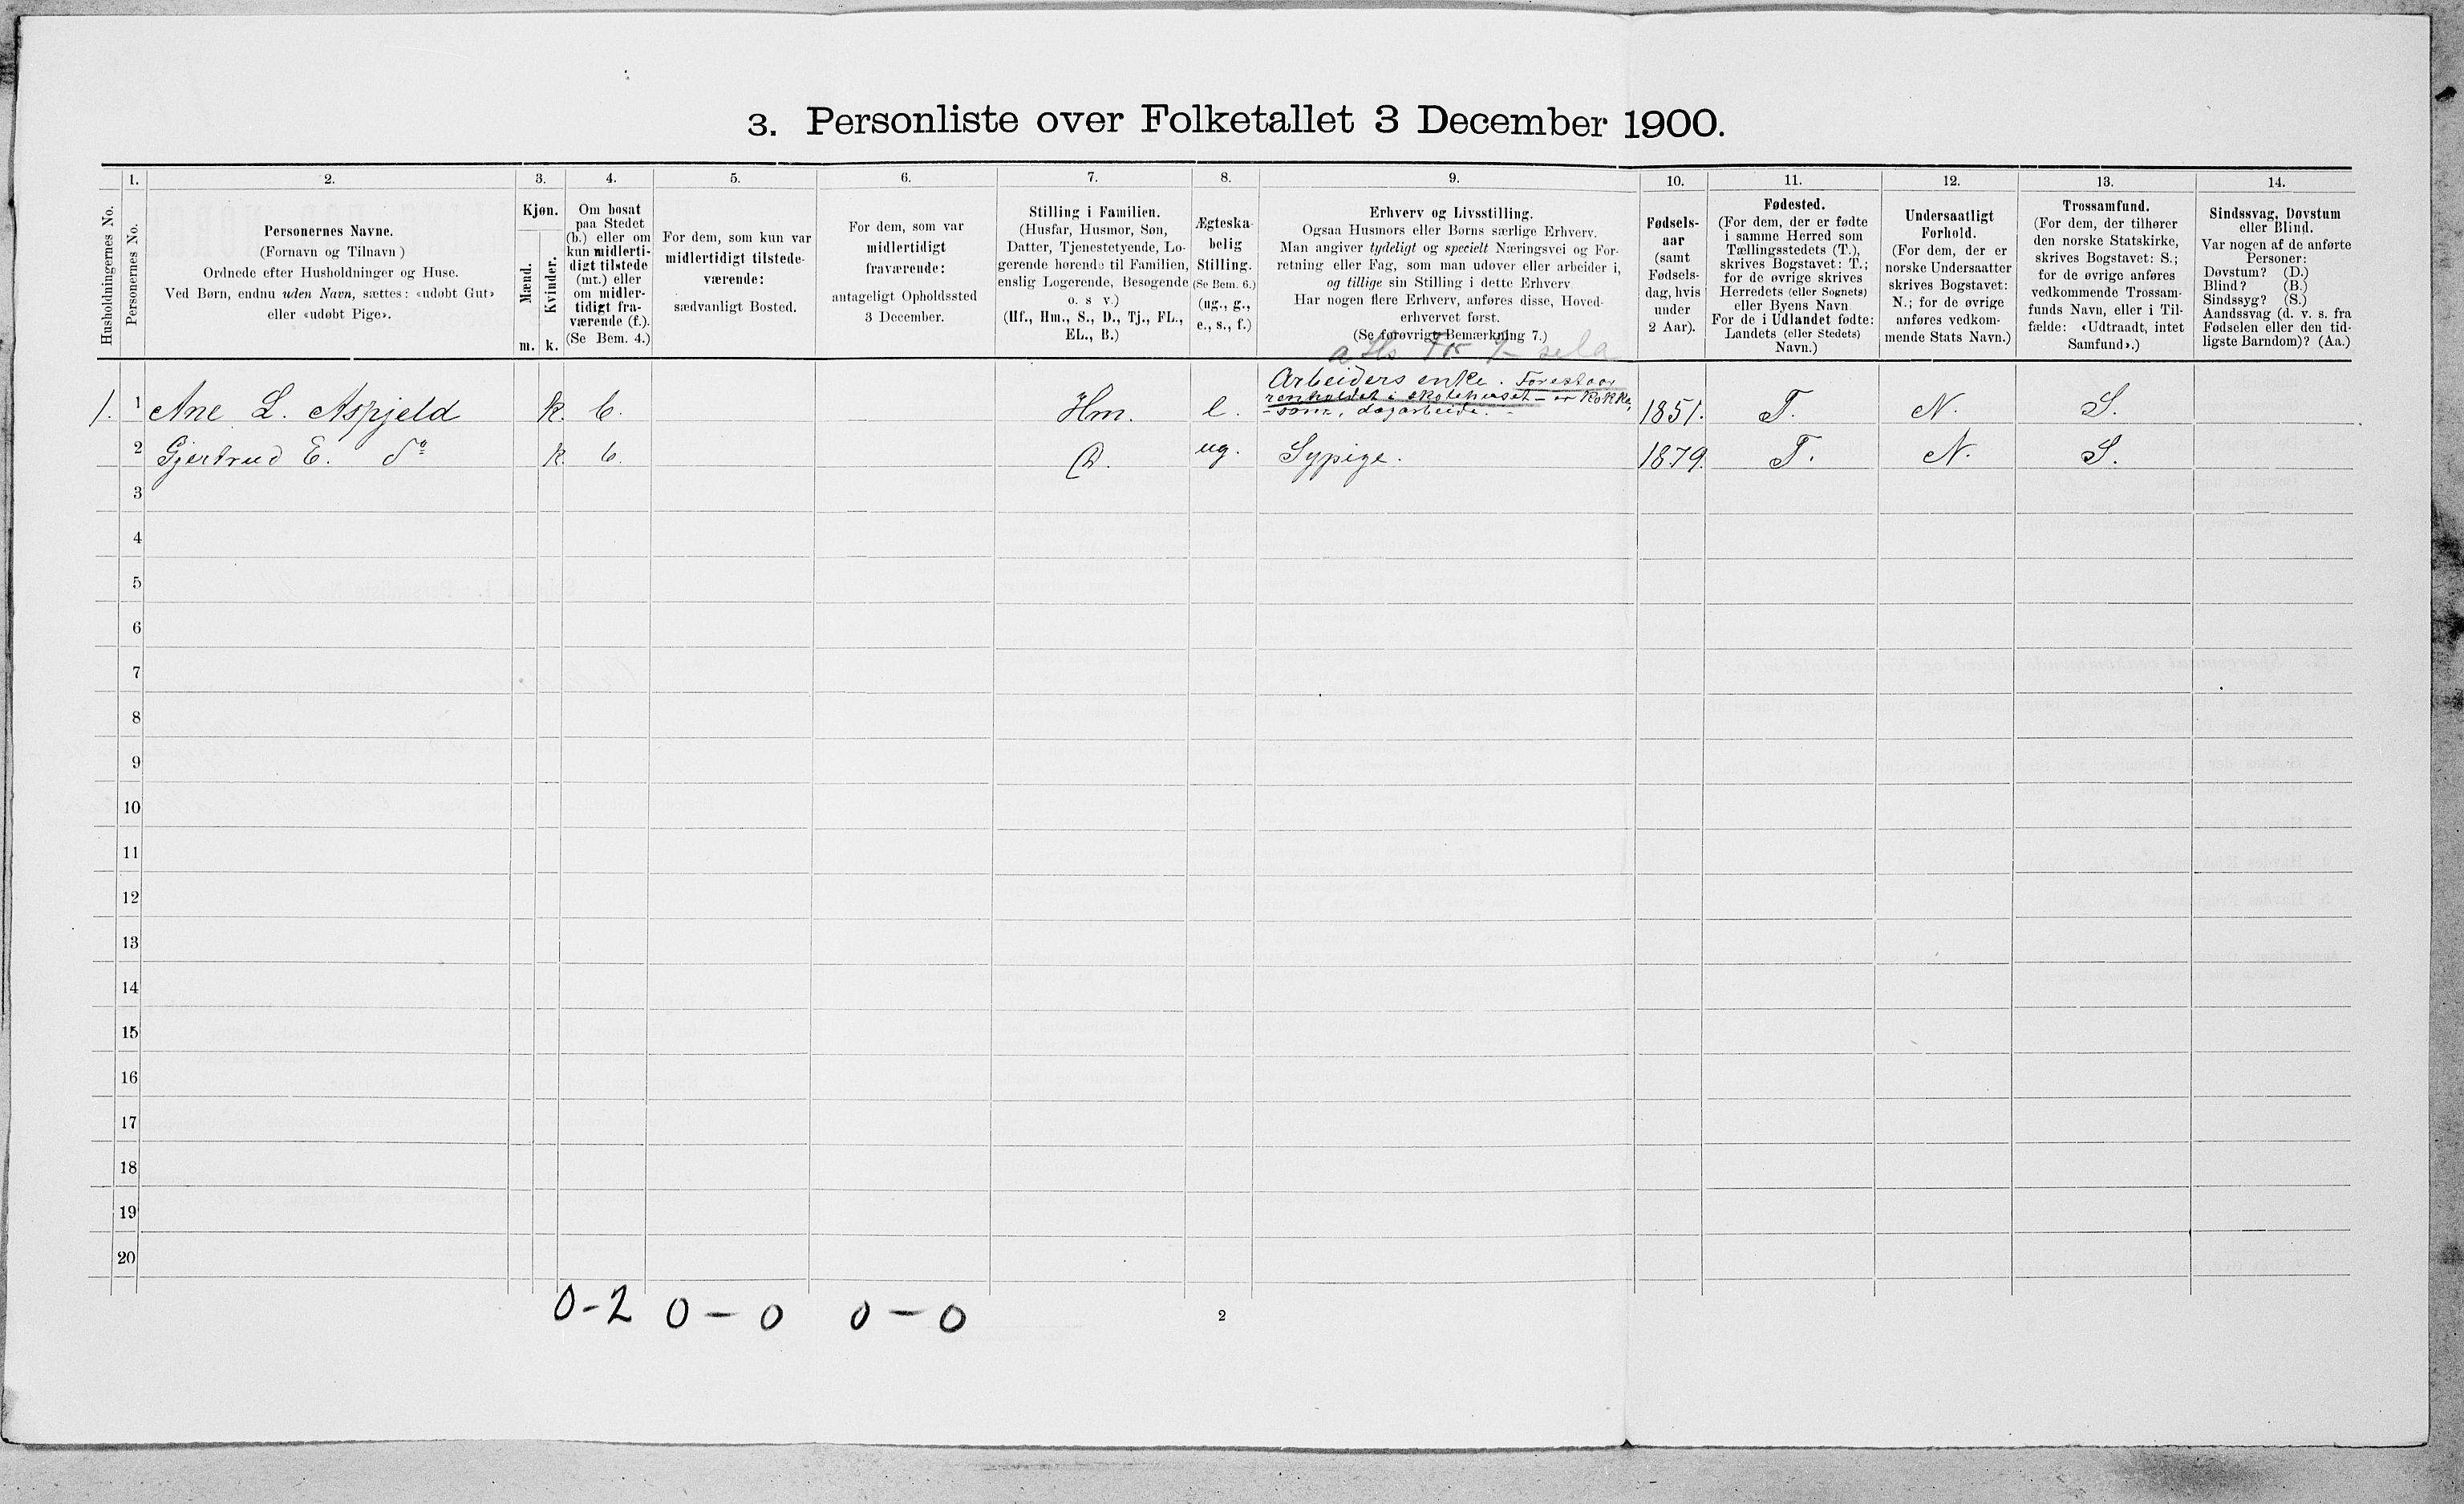 3. Personliste over Folketallet 3 December 1900.
1. 2. 3. 4. 5. 6. 7. 8. 9. 10. 11. 12. 13. 14.
Husholdningernes No.
Personernes No.
Personernes Navne.
(Fornavn og Tilnavn)
Ordnede efter Husholdninger og Huse.
Ved Børn, endnu uden Navn, sættes: «udøbt Gut»
eller «udøbt Pige».
Kjøn.
Mænd.
Kvinder.
m. k.
Om bosat
paa Stedet
(b.) eller om
kun midlerti-
digt tilstede
(mt.) eller
om midler-
tidigt fra-
værende (f.).
(Se Bem. 4.)
For dem, som kun var
midlertidigt tilstede-
værende:
sædvanligt Bosted.
For dem, som var
midlertidigt
fraværende:
antageligt Opholdssted
3 December.
Stilling i Familien.
(Husfar, Husmor, Søn,
Datter, Tjenestetyende, Lo-
gerende hørende til Familien,
enslig Logerende, Besøgende
o. s v.)
(Hf., Hm., S., D., Tj., FL.,
EL., B.)
Ægteska-
belig
Stilling.
(Se Bem. 6.)
(ug., g.,
e., s., f.)
Erhverv og Livsstilling.
Ogsaa Husmors eller Børns særlige Erhverv.
Man angiver tydeligt og specielt Næringsvei og For-
retning eller Fag, som man udøver eller arbeider i,
og tillige sin Stilling i dette Erhverv
Har nogen flere Erhverv, anføres disse, Hoved-
erhvervet først.
(Se forøvrigt Bemærkning 7.)
Fødsels-
aar
(samt
Fødsels-
dag, hvis
under
2 Aar).
Fødested.
(For dem, der er fødte
i samme Herred som
Tællingsstedets (T.),
skrives Bogstavet: T.;
for de øvrige skrives
Herredets (eller Sognets)
eller Byens Navn
For de i Udlandet fødte:
Landets (eller Stedets)
Navn.)
Undersaatligt
Forhold.
(For dem, der er
norske Undersaatter
skrives Bogstavet:
N.; for de øvrige
anføres vedkom-
mende Stats Navn.)
Trossamfund.
(For dem, der tilhører
den norske Statskirke,
skrives Bogstavet: S.;
for de øvrige anføres
vedkommende Trossam-
funds Navn, eller i Til-
fælde: «Udtraadt, intet
Samfund».)
Sindssvag, Døvstum
eller Blind.
Var nogen af de anførte
Personer:
Døvstum? (D.)
Blind? (B.)
Sindssyg? (S.)
Aandssvag (d. v. s. fra
Fødselen eller den tid-
ligste Barndom)? (Aa.)
1. 1 Ane L. Aspjeld k. b. Hm. e. Arbeiders enke. Forestaar
renholdet i skolehuset - er kokke,
- som, dagarbeide. 1851. T. N. S.
2 Gjertrud E. do k. b. D. ug. Sypige. 1879. T. N. S.
3
4
5
6
7
8
9
10
11
12
13
14
15
16
17
18
19
20
0-2 0-0 0-0
2